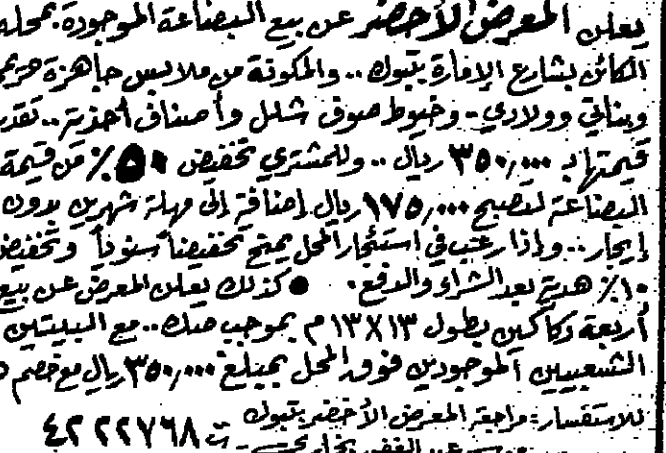 يعلن المعرض الأخضر عن بيع البضاعة الموجودة بمحله
الكائن بشارع الإمارة بتبوك .. والمكونة من ملابس جاهزة حريمي
وبناتي وولادي - وخيوط صوف شلل وأصناف أحذية .. تقدر
قيمتها بـ ٣٥٠,٠٠٠ ريال .. وللمشتري تخفيض ٥٠٪ من قيمة
البضاعة لتصبح ١٧٥,٠٠٠ ريال إضافة إلى مهلة شهرين بدون
إيجار .. وإذا رغب في استئجار المحل يمنح تخفيضاً سنوياً وتخفيض
١٠٪ هدية بعد الشراء والدفع . ● كذلك يعلن المعرض عن بيع
أربعة دكاكين بطول ١٣×١٣ م بموجب صك .. مع البيتين
الشعبيين الموجودين فوق المحل بمبلغ ٣٥٠,٠٠٠ ريال مع خصم
للاستفسار : مراجعة المعرض الأخضر بتبوك ت ٤٢٢٢٧٦٨